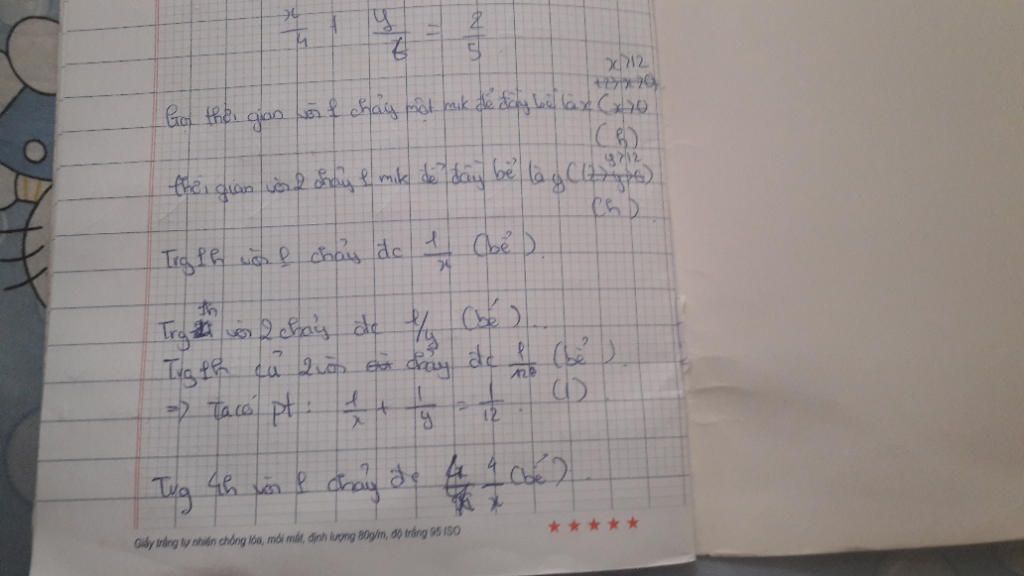 x/4 + y/6 = 2/5
x>12
Gọi thời gian vòi 1 chảy một mk để đầy bể là x (x>0
(h)
y>12
thời gian vòi 2 chảy 1 mk để đầy bể là y (
(h)
Trg 1h vòi 1 chảy đc 1/x (bể).
Trg 1h vòi 2 chảy đc 1/y (bể)..
Trg 1h cả 2 vòi chảy đc (bể).
=> Ta có pt: 1/x + 1/y = 1/12. (1)
Trg 4h vòi 1 chảy đc 4/x (bể).
Giấy trắng tự nhiên chống lóa, mỏi mắt, định lượng 80g/m, độ trắng 95 ISO